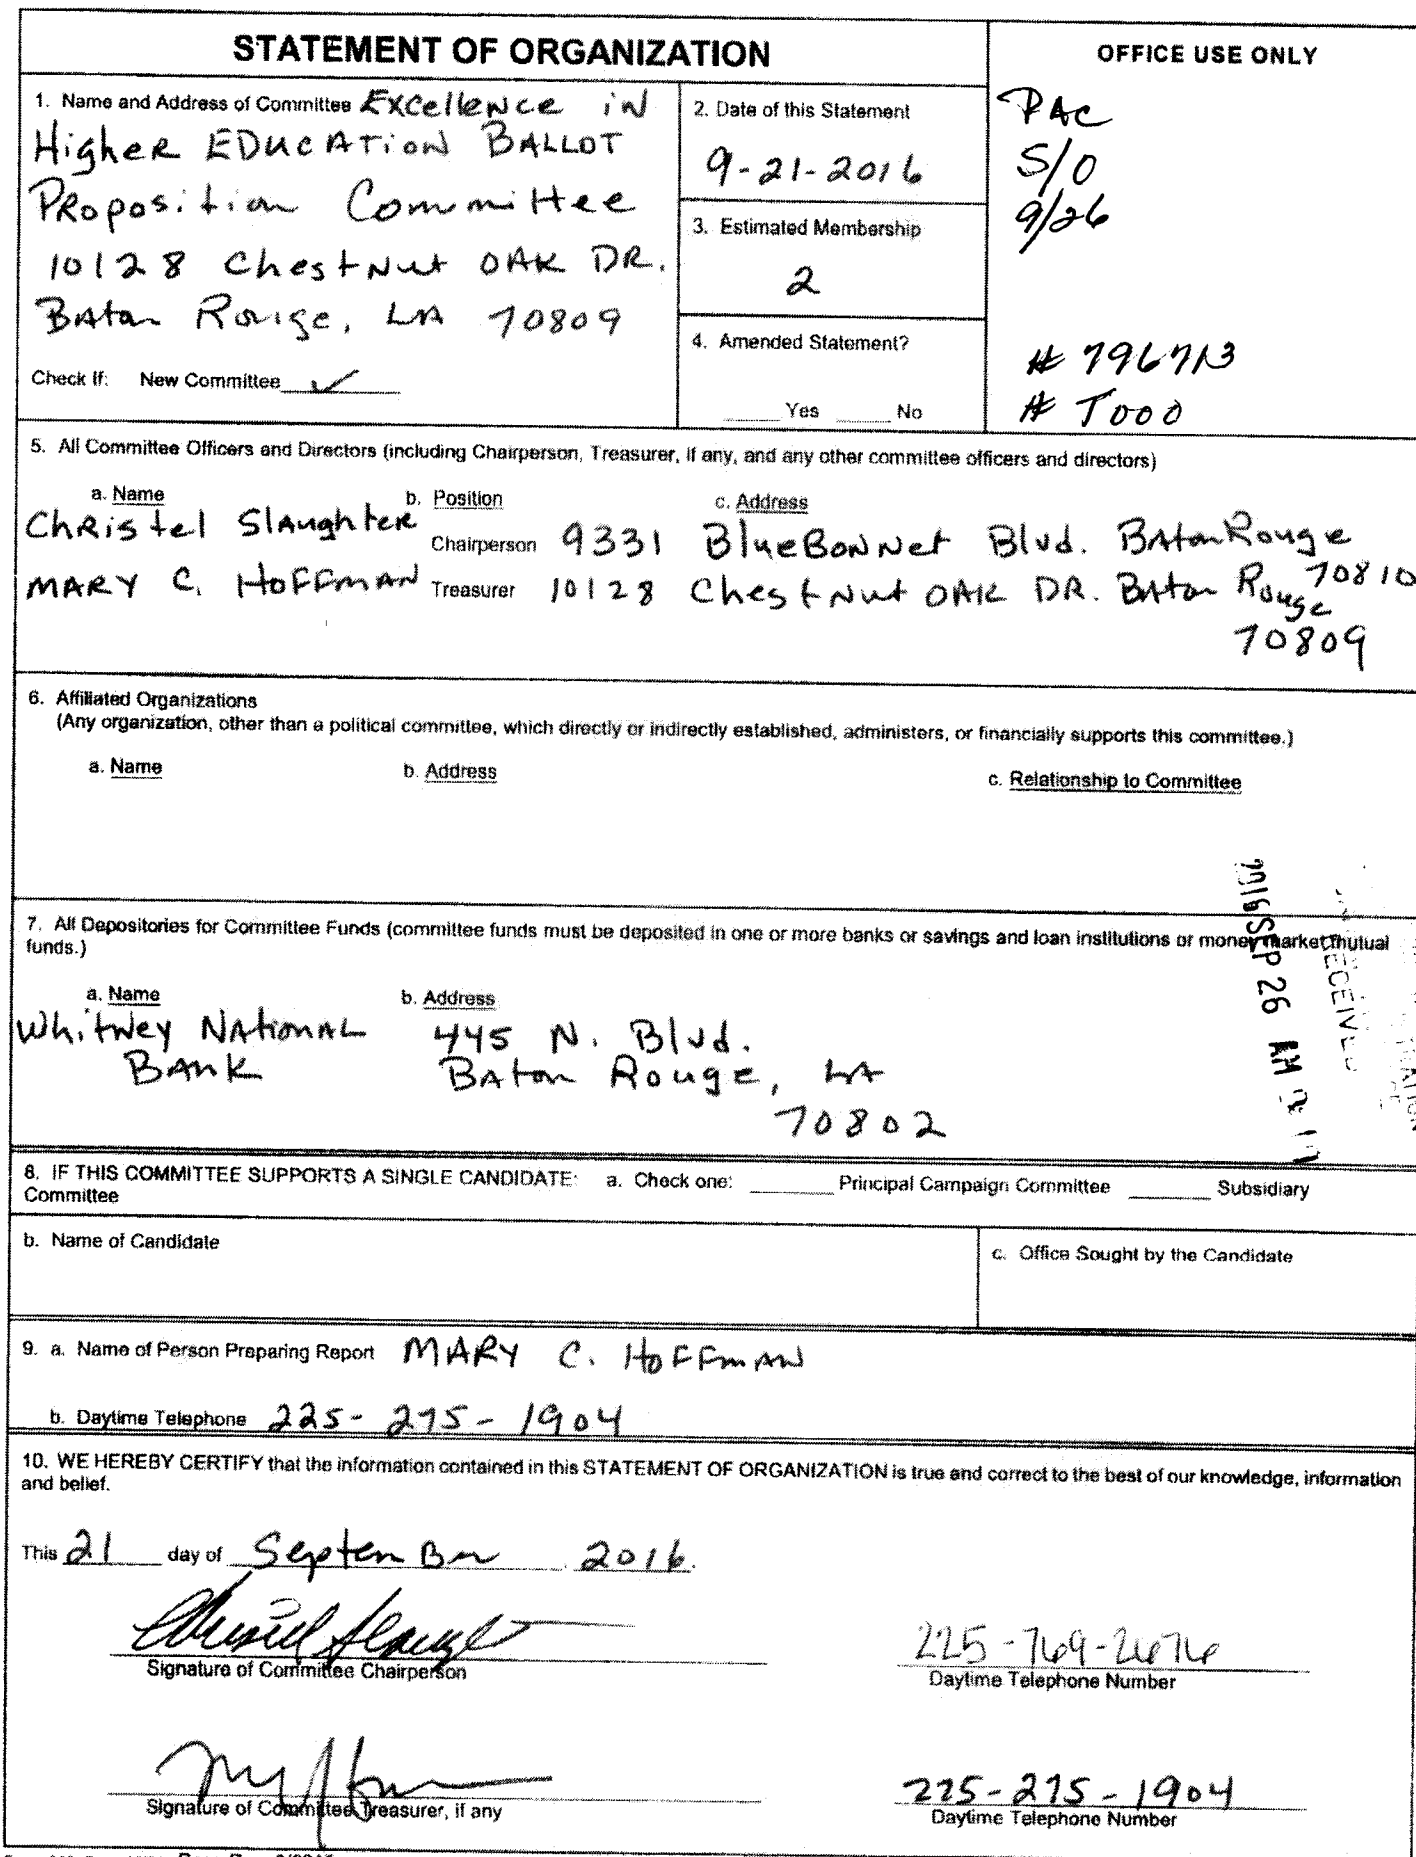 STATEMENT OF ORGANIZATION
OFFICE USE ONLY
1. Name and Address of Committee Excellence in
Higher Education Ballot
Proposition Committee
10128 Chestnut Oak Dr.
Baton Rouge, LA 70809
Check If: New Committee ✓
2. Date of this Statement
9-21-2016
3. Estimated Membership
2
4. Amended Statement?
Yes No
PAC
S/O
9/26
# 796713
# T000
5. All Committee Officers and Directors (including Chairperson, Treasurer, if any, and any other committee officers and directors)
a. Name b. Position c. Address
Christel Slaughter Chairperson 9331 BlueBonnet Blvd. Baton Rouge
70810
Mary C. Hoffman Treasurer 10128 Chestnut Oak Dr. Baton Rouge
70809
6. Affiliated Organizations
(Any organization, other than a political committee, which directly or indirectly established, administers, or financially supports this committee.)
a. Name b. Address c. Relationship to Committee
7. All Depositories for Committee Funds (committee funds must be deposited in one or more banks or savings and loan institutions or money market mutual
funds.)
a. Name b. Address
Whitney National 445 N. Blvd.
Bank Baton Rouge, LA
70802
RECEIVED
2016 SEP 26 AM
8. IF THIS COMMITTEE SUPPORTS A SINGLE CANDIDATE: a. Check one: Principal Campaign Committee Subsidiary
Committee
b. Name of Candidate
c. Office Sought by the Candidate
9. a. Name of Person Preparing Report Mary C. Hoffman
b. Daytime Telephone 225-275-1904
10. WE HEREBY CERTIFY that the information contained in this STATEMENT OF ORGANIZATION is true and correct to the best of our knowledge, information
and belief.
This 21 day of September 2016.
Signature of Committee Chairperson
225-769-2676
Daytime Telephone Number
Signature of Committee Treasurer, if any
225-275-1904
Daytime Telephone Number